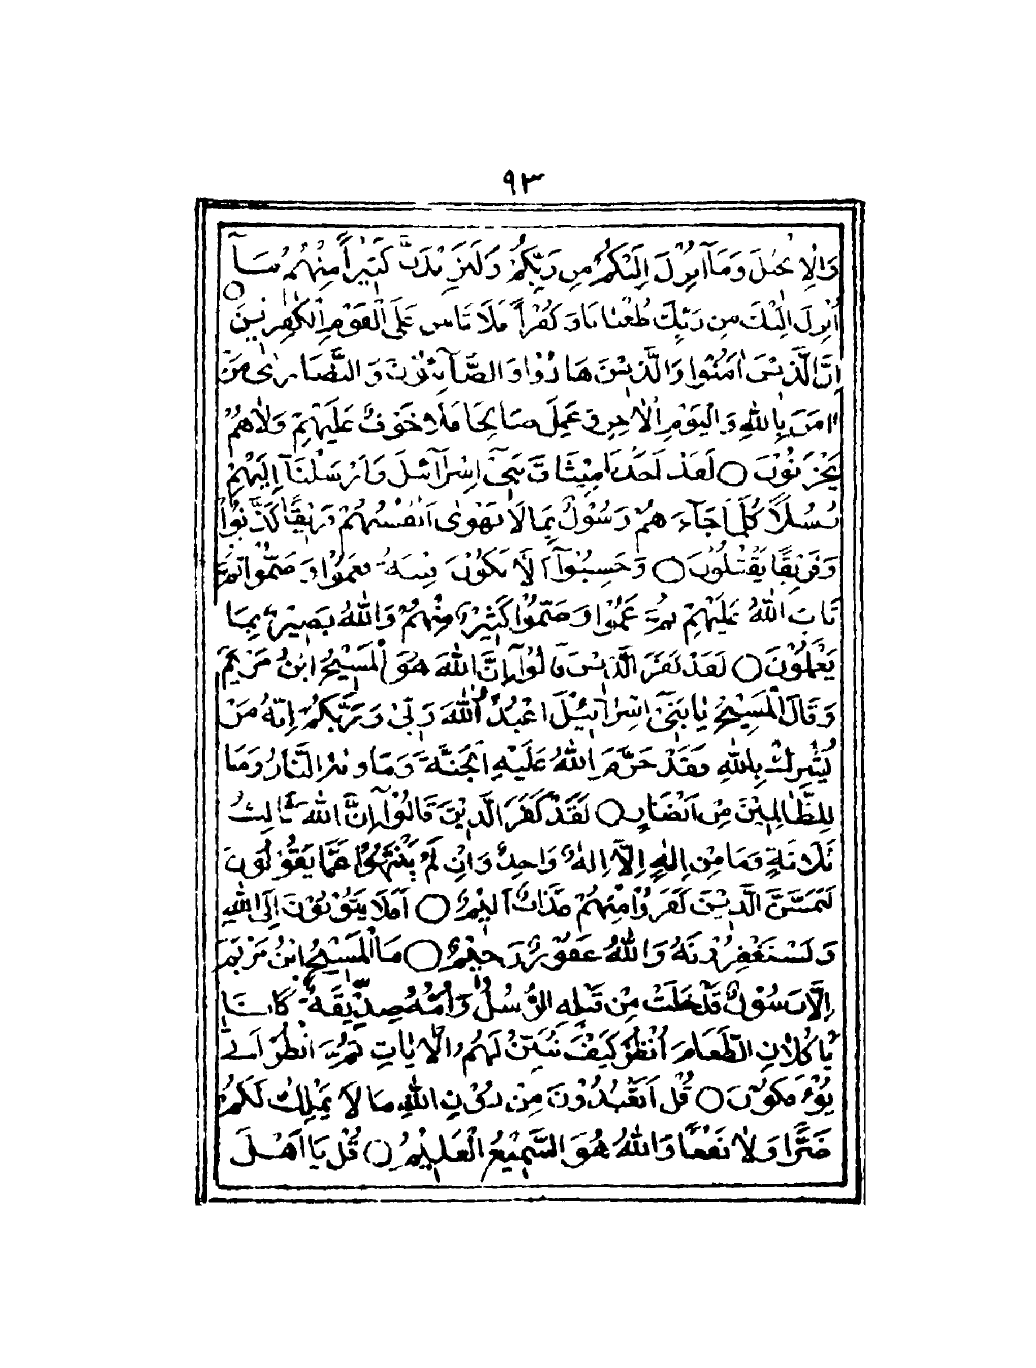 ٩٣
وَالْاِنْجِيْلَ وَمَآ اُنْزِلَ اِلَيْكُمْ مِنْ رَبِّكُمْ وَلَيَزِيْدَنَّ كَثِيْراً مِنْهُمْ مَآ
اُنْزِلَ اِلَيْكَ مِنْ رَبِّكَ طُغْيَانًا وَكُفْراً فَلَا تَاْسَ عَلَى الْقَوْمِ الْكٰفِرِيْنَ ○
اِنَّ الَّذِيْنَ اٰمَنُوْا وَالَّذِيْنَ هَادُوْا وَالصَّآبِئُوْنَ وَالنَّصَارٰى مَنْ
اٰمَنَ بِاللّٰهِ وَالْيَوْمِ الْاٰخِرِ وَ عَمِلَ صَالِحًا فَلَا خَوْفٌ عَلَيْهِمْ وَلَاهُمْ
يَحْزَنُوْنَ ○ لَقَدْ اَخَذْنَا مِيْثَاقَ بَنِيْٓ اِسْرَآئِيْلَ وَاَرْسَلْنَآ اِلَيْهِمْ
رُسُلًا كُلَّمَا جَآءَ هُمْ رَسُوْلٌ بِمَا لَا تَهْوٰى اَنْفُسُهُمْ فَرِيْقًا كَذَّبُوْا
وَفَرِيْقًا يَقْتُلُوْنَ ○ وَحَسِبُوْٓا اَلَّا تَكُوْنَ فِتْنَةٌ فَعَمُوْا وَصَمُّوْا ثُمَّ
تَابَ اللّٰهُ عَلَيْهِمْ ثُمَّ عَمُوْا وَصَمُّوْا كَثِيْرٌ مِنْهُمْ وَاللّٰهُ بَصِيْرٌ بِمَا
يَعْمَلُوْنَ ○ لَقَدْ كَفَرَ الَّذِيْنَ قَالُوْٓا اِنَّ اللّٰهَ هُوَ الْمَسِيْحُ ابْنُ مَرْيَمَ
وَقَالَ الْمَسِيْحُ يٰا بَنِيْٓ اِسْرَآئِيْلَ اعْبُدُوا اللّٰهَ رَبِّيْ وَرَبَّكُمْ اِنَّهُ مَنْ
يُشْرِكْ بِاللّٰهِ فَقَدْ حَرَّمَ اللّٰهُ عَلَيْهِ الْجَنَّةَ وَمَاْوٰىهُ النَّارُ وَمَا
لِلظَّالِمِيْنَ مِنْ اَنْصَارٍ ○ لَقَدْ كَفَرَ الَّذِيْنَ قَالُوْٓا اِنَّ اللّٰهَ ثَالِثُ
ثَلَاثَةٍ وَمَا مِنْ اِلٰهٍ اِلَّآ اِلٰهٌ وَاحِدٌ وَاِنْ لَمْ يَنْتَهُوْا عَمَّا يَقُوْلُوْنَ
لَيَمَسَّنَّ الَّذِيْنَ كَفَرُوْا مِنْهُمْ عَذَابٌ اَلِيْمٌ ○ اَفَلَا يَتُوْبُوْنَ اِلَى اللّٰهِ
وَيَسْتَغْفِرُوْنَهُ وَاللّٰهُ غَفُوْرٌ رَحِيْمٌ ○ مَا الْمَسِيْحُ ابْنُ مَرْيَمَ
اِلَّا رَسُوْلٌ قَدْ خَلَتْ مِنْ قَبْلِهِ الرُّسُلُ وَاُمُّهُ صِدِّيْقَةٌ كَانَا
يَاْكُلَانِ الطَّعَامَ اُنْظُرْ كَيْفَ نُبَيِّنُ لَهُمُ الْاٰيَاتِ ثُمَّ انْظُرْ اَنّٰى
يُؤْفَكُوْنَ ○ قُلْ اَتَعْبُدُوْنَ مِنْ دُوْنِ اللّٰهِ مَا لَا يَمْلِكُ لَكُمْ
ضَرًّا وَلَا نَفْعًا وَاللّٰهُ هُوَ السَّمِيْعُ الْعَلِيْمُ ○ قُلْ يَا اَهْلَ